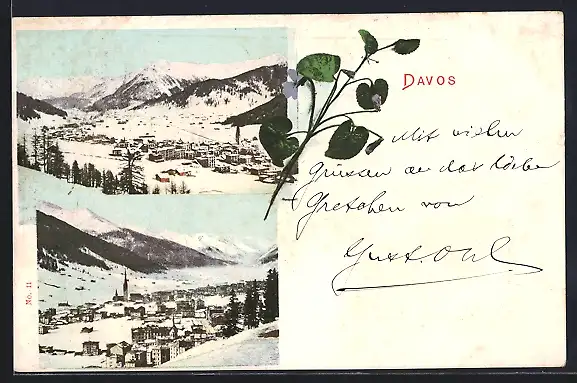 DAVOS
Mit vielen
Grüssen an das liebe
Gretchen von
Gust. Ohl
No. 11